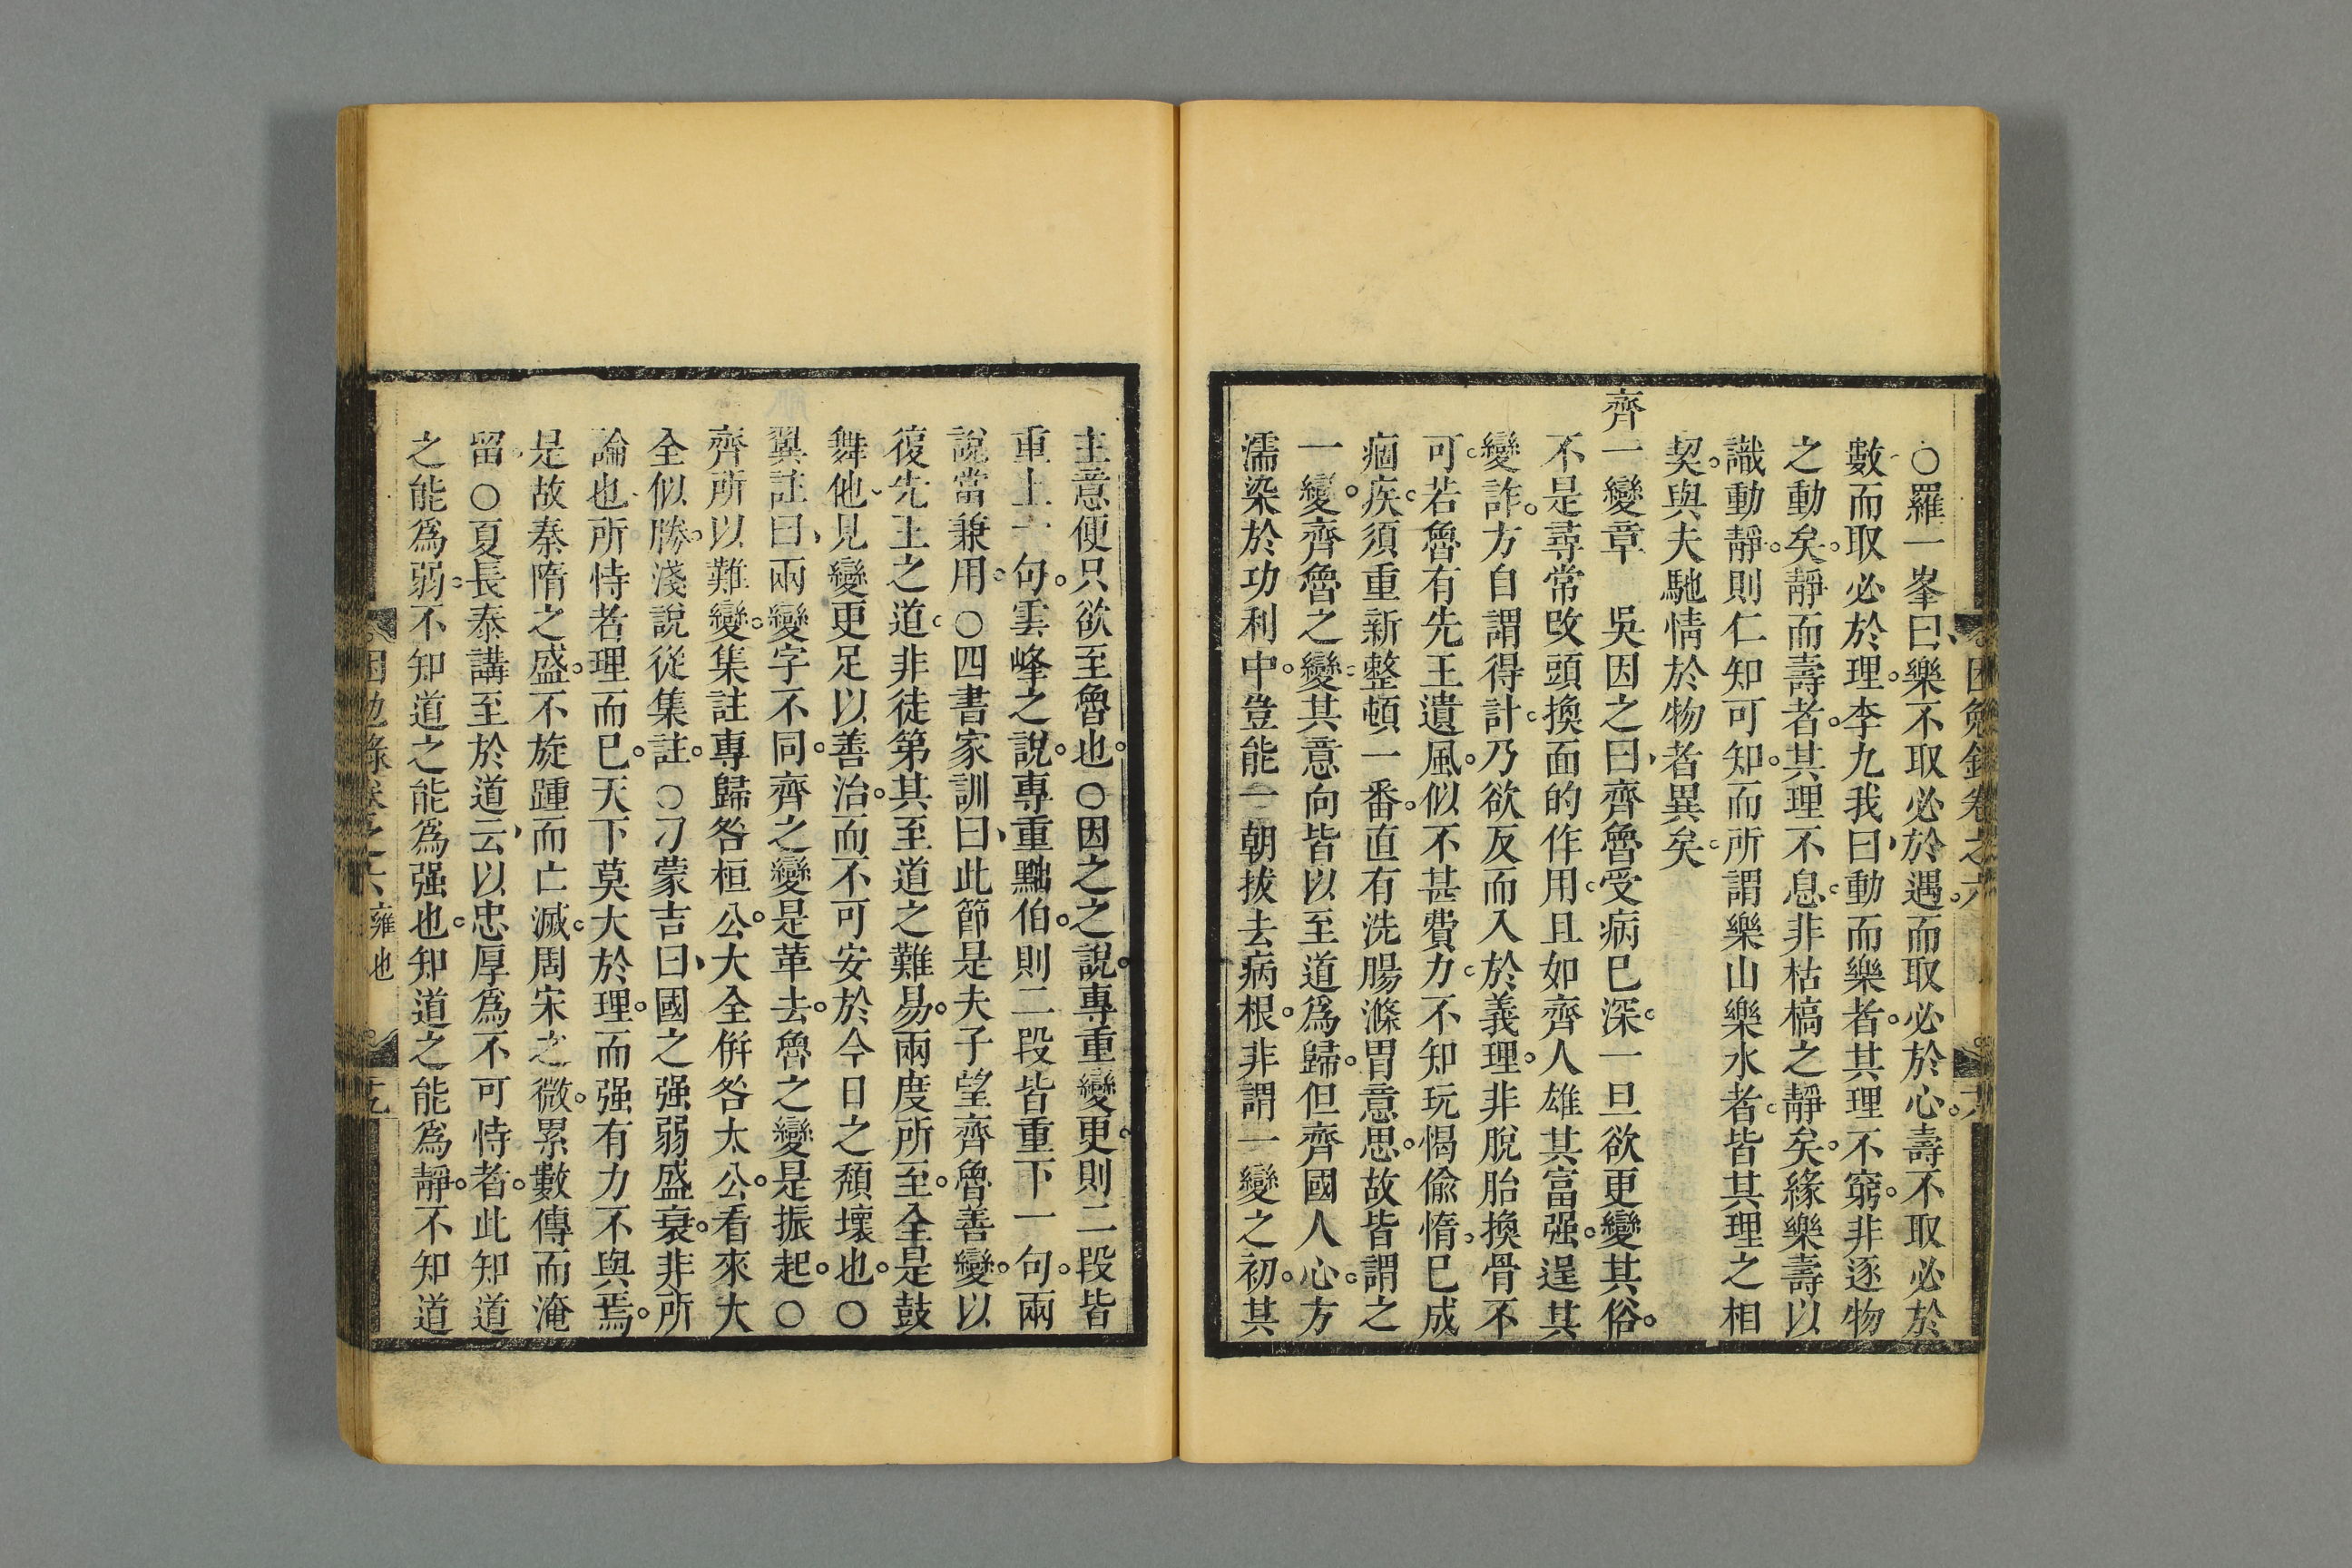 ○羅一峯曰樂不取必於遇。而取必於心。壽不取必於
數而取必於理。李九我曰動而樂者。其理不窮。非逐物
之動矣。靜而壽者。其理不息。非枯槁之靜矣。緣樂壽以
識動靜。則仁知可知。而所謂樂山樂水者。皆其理之相
契。與夫馳情於物者異矣。
齊一變章　吳因之曰齊魯受病已深。一旦欲更變其俗。
不是尋常改頭換面的作用。且如齊人雄其富强。逞其
變詐。方自謂得計。乃欲反而入於義理。非脫胎換骨不
可。若魯有先王遺風。似不甚費力。不知玩愒偸惰。已成
痼疾。須重新整頓一番。直有洗腸滌胃意思。故皆謂之
一變。齊魯之變。其意向皆以至道爲歸。但齊國人心。方
濡染於功利中。豈能一朝拔去病根。非謂一變之初。其
主意便只欲至魯也。○因之之說。專重變更。則二段皆
重上一句。雲峰之說。專重黜伯。則二段皆重下一句。兩
說當兼用。○四書家訓曰此節是夫子望齊魯善變。以
復先王之道。非徒第其至道之難易。兩度所至。全是鼓
舞他。見變更足以善治。而不可安於今日之頹壞也。○
翼註曰兩變字不同。齊之變是革去。魯之變是振起。○
齊所以難變。集註專歸咎桓公。大全併咎太公。看來大
全似勝。淺說從集註。○刁蒙吉曰國之强弱盛衰。非所
論也。所恃者理而已。天下莫大於理。而强有力不與焉。
是故秦隋之盛。不旋踵而亡滅。周宋之微。累數傳而淹
留。○夏長泰講至於道云以忠厚爲不可恃者。此知道
之能爲弱。不知道之能爲强也。知道之能爲靜。不知道
困勉錄卷之六　雍也　十九